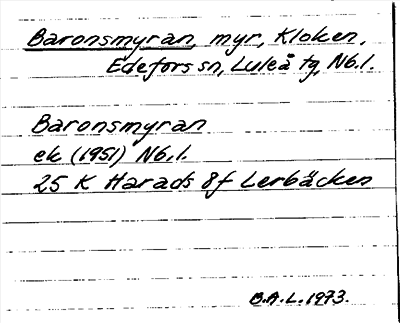 Baronsmyran, myr, Kloken,
Edefors sn, Luleå tg, Nb.l.
Baronsmyran
ek (1951) Nb.l.
25 K Harads 8f Lerbäcken
B.A.L. 1973.